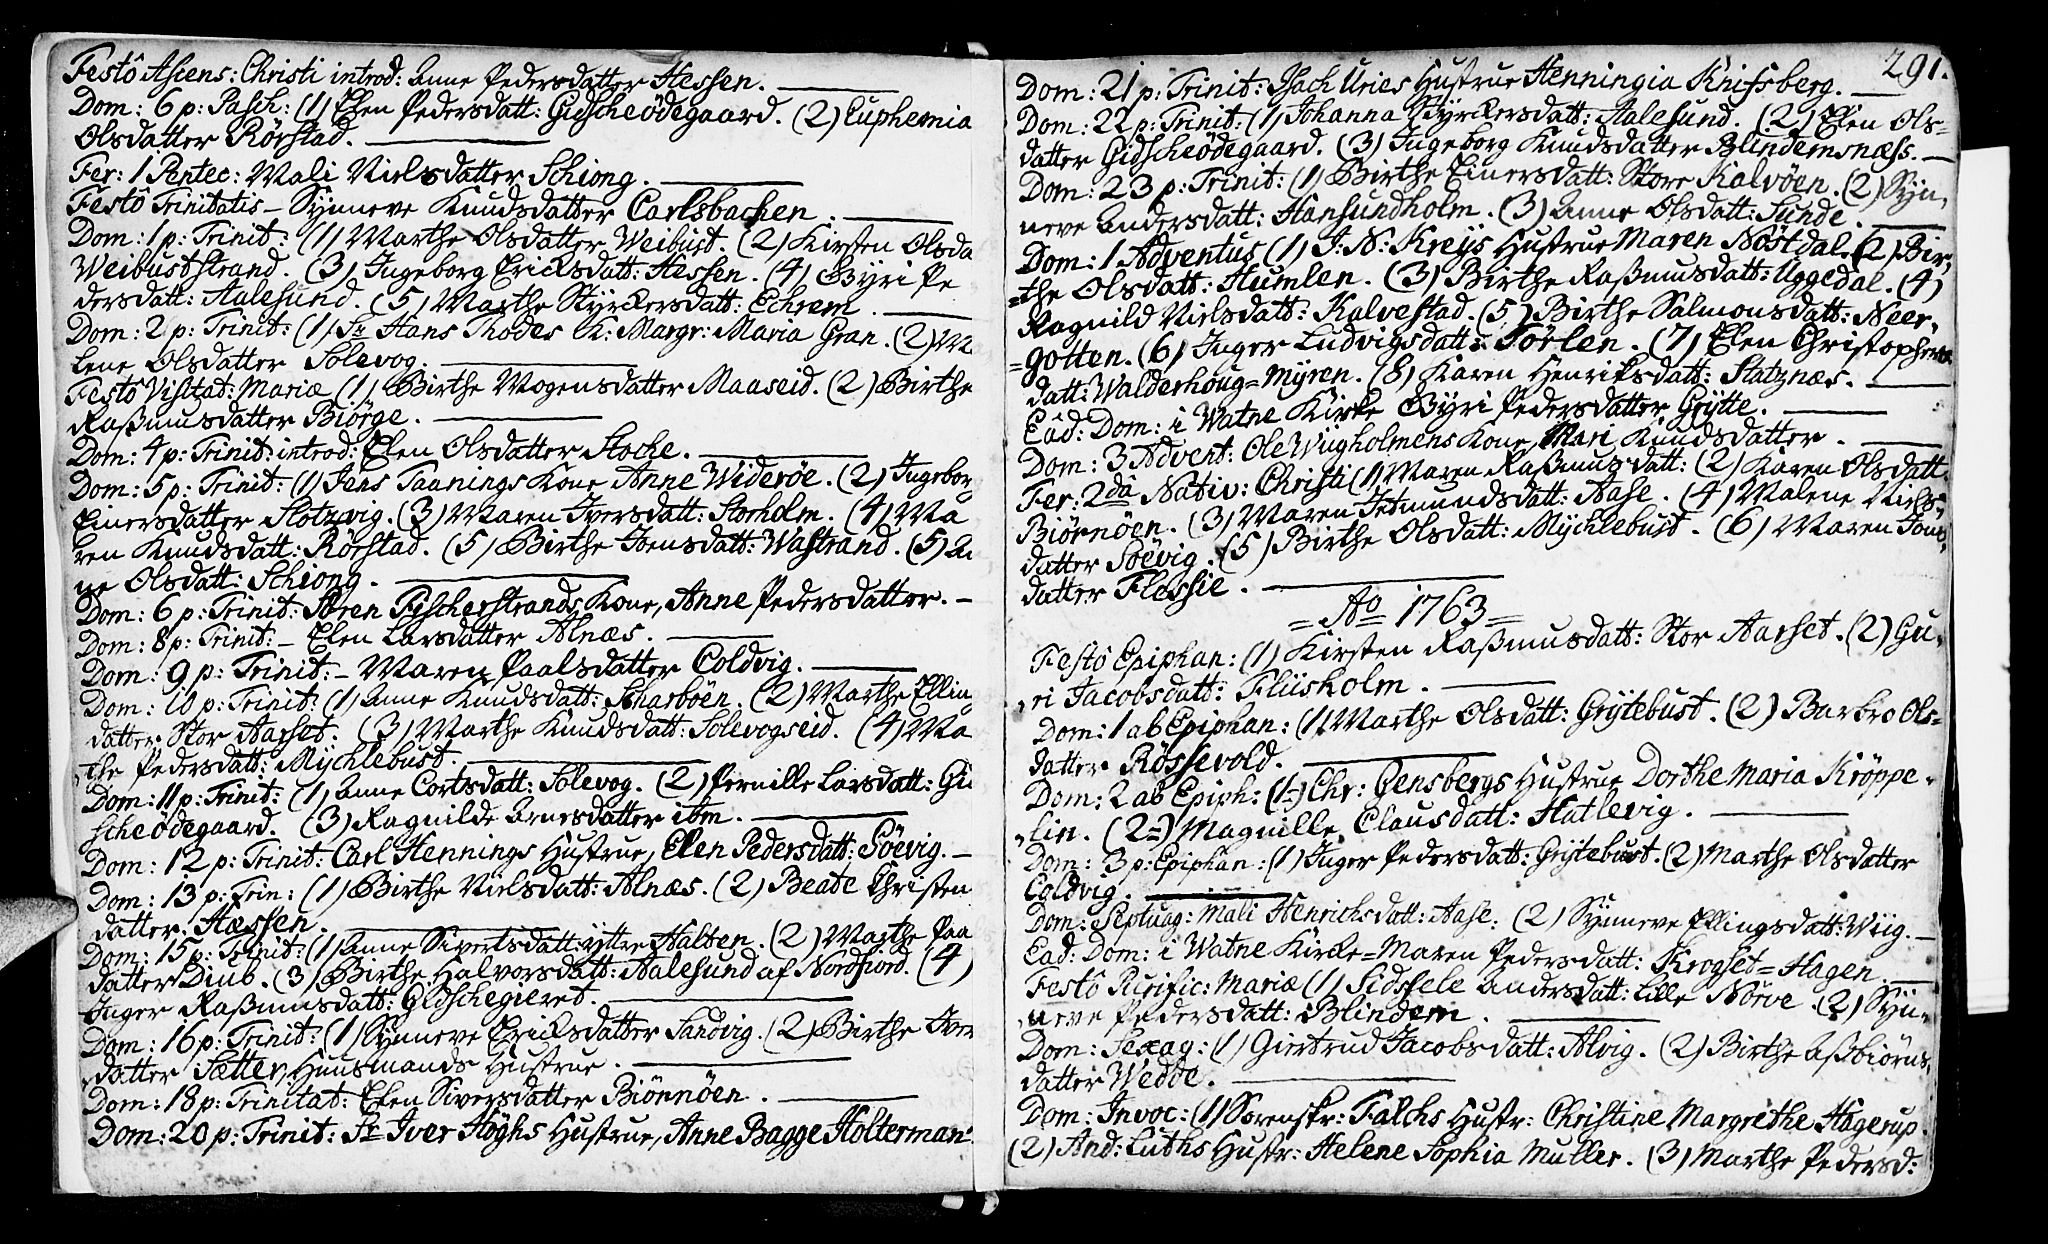 Festô Ascens: Christi introd: Anne Pedersdatter Hessen.
Dom: 6 p: Pasch: (1) Elen Pedersdatt: Gidscheödegaard. (2) Euphemia
Olsdatter Rörstad.
Fer: 1 Pentec: Mali Nielsdatter Schiong.
Festô Trinitatis - Synneve Knudsdatter Carlsbachen.
Dom: 1 p: Trinit: (1) Marthe Olsdatter Weibust. (2) Kirsten Olsda
Weibuststrand. (3) Ingeborg Ericksdatt: Hessen. (4) Gyri Pe
dersdatt: Aalesund. (5) Marthe Styrckersdatt: Echrem.
Dom: 2 p: Trinit: (1) Sr Hans Thodes K: Margr: Maria Gran. (2) M
lene Olsdatter Solevog.
Festô Visitat: Mariæ (1) Birthe Mogensdatter Maaseid. (2) Birthe
Raßmusdatter Biörge.
Dom: 4 p: Trinit: introd: Elen Olsdatter Stocke.
Dom: 5 p: Trinit: (1) Jens Taanings Kone Anne Wideröe. (2) Ingebor
Einersdatter Slotzvig. (3) Maren Iversdatt: Storholm. (4) Ma
ren Knudsdatt: Rörstad. (5) Birthe Joensdatt: Wastrand. (5) An
ne Olsdatt: Schiong.
Dom: 6 p: Trinit: Sören Fischerstrands Kone, Anne Pedersdatter. -
Dom: 8 p: Trinit: - Elen Larsdatter Alnæs.
Dom: 9 p: Trinit: - Maren Paalsdatter Coldvig.
Dom: 10 p: Trinit: (1) Anne Knudsdatt: Skarböen. (2) Marthe Ellin
datter Stor Aarset. (3) Marthe Knudsdatt: Solevogseid. (4) Ma
the Pedersdatt: Mychlebust.
Dom: 11 p: Trinit: (1) Anne Cortsdatt: Solevog. (2) Pernille Larsdatt: Gid
scheödegaard. (3) Ragnilde Arnesdatter itm.
Dom: 12 p: Trinit: Carl Hennings Hustrue, Elen Pedersdatt: Söevig. -
Dom: 13 p: Trin: (1) Birthe Nielsdatt: Alnæs. (2) Beate Christen
datter Hæssen.
Dom: 15 p: Trinit: (1) Anne Sivertsdatt: yttre Halten. (2) Marthe Paa
datter Diub. (3) Birthe Halvorsdatt: Aalesund af Nordfiord. (4)
Inger Raßmusdatt: Gidschegieret.
Dom: 16 p: Trinit: (1) Synneve Ericksdatter Sandvig. (2) Birthe Iver
datter Sætter, Huusmands Hustrue.
Dom: 18 p: Trinitat: Elen Siversdatter Biönnöen.
Dom: 20 p: Trinit: Sr Iver Höghs Hustrue, Anne Bagge Holterman
291.
Dom: 21 p: Trinit: Isach Uries Hustrue Henningia Knifsberg.
Dom: 22 p: Trinit: (1) Johanna Styrckersdatt: Aalesund. (2) Elen Ols-
datter Gidscheödegaard. (3) Ingeborg Knudsdatter Blindemsnæss. -
Dom: 23 p: Trinit: (1) Birthe Einersdatt: Store Kalvöen. (2) Syn,
neve Andersdatt: Hansundholm. (3) Anne Olsdatt: Sunde.
Dom: 1 Adventus (1) J: N: Kreijs Hustrue Maren Nöstdal. (2) Bir,
=the Olsdatt: Humlen. (3) Birthe Raßmusdatt: Uggedal. (4)
Ragnild Nielsdatt: Kalvestad. (5) Birthe Salmonsdatt: Neer,
=gotten. (6) Inger Ludvigsdatt: Törlen. (7) Elen Christophers
datt: Walderhoug=Myren. (8) Karen Henriksdatt: Slatznæs.
Eâd: Dom: i Watne Kirke Gyri Pedersdatter Grytte.
Dom: 3 Advent: Ole Wiigholmens Kone, Mari Knudsdatter.
Fer: 2dâ Nativ: Christi (1) Maren Raßmusdatt: (2) Karen Olsdatt
Biörnöen. (3) Maren Jetmundsdatt: Aase. (4) Malene Niels
datter Söevig. (5) Birthe Olsdatt: Mychlebust. (6) Maren Jons,
datter Flessie.
= Ao 1763 =
Festô Epiphan: (1) Kirsten Raßmusdatt: Stor Aarset. (2) Gu,
,ri Jacobsdatt: Fliisholm.
Dom: 1 ab Epiphan: (1) Marthe Olsdatt: Grytebust. (2) Barbro Ols=
datter Rössevold.
Dom: 2 ab Epiph: (1=) Chr: Gensbergs Hustrue Dorthe Maria Kröppe,
,lin. (2=) Magnille Clausdatt: Hatlevig.
Dom: 3 p: Epiphan: (1) Inger Pedersdatt: Grytebust. (2) Marthe Olsdatter
Coldvig.
Dom: Septuag: Mali Henrichsdatt: Aase: (2) Synneve Ellingsdatt: Wiig. -
Ead: Dom: i Watne Kirke = Maren Pedersdatt: Krogset=Hagen.
Festô Purific: Mariæ (1) Sidsele Andersdatt: Lille Nörve (2) Syn,
,neve Pedersdatt: Blindem.
Dom: Sexag: (1) Giertrud Jacobsdatt: Alvig. (2) Birthe Aßbiörns,
datter Wedde.
Dom: Invoc: (1) Sorenskr: Falchs Hustr: Christine Margrethe Hagerup.
(2) And: Luths Hustr: Helene Sophia Muller. (3) Marthe Pedersd: